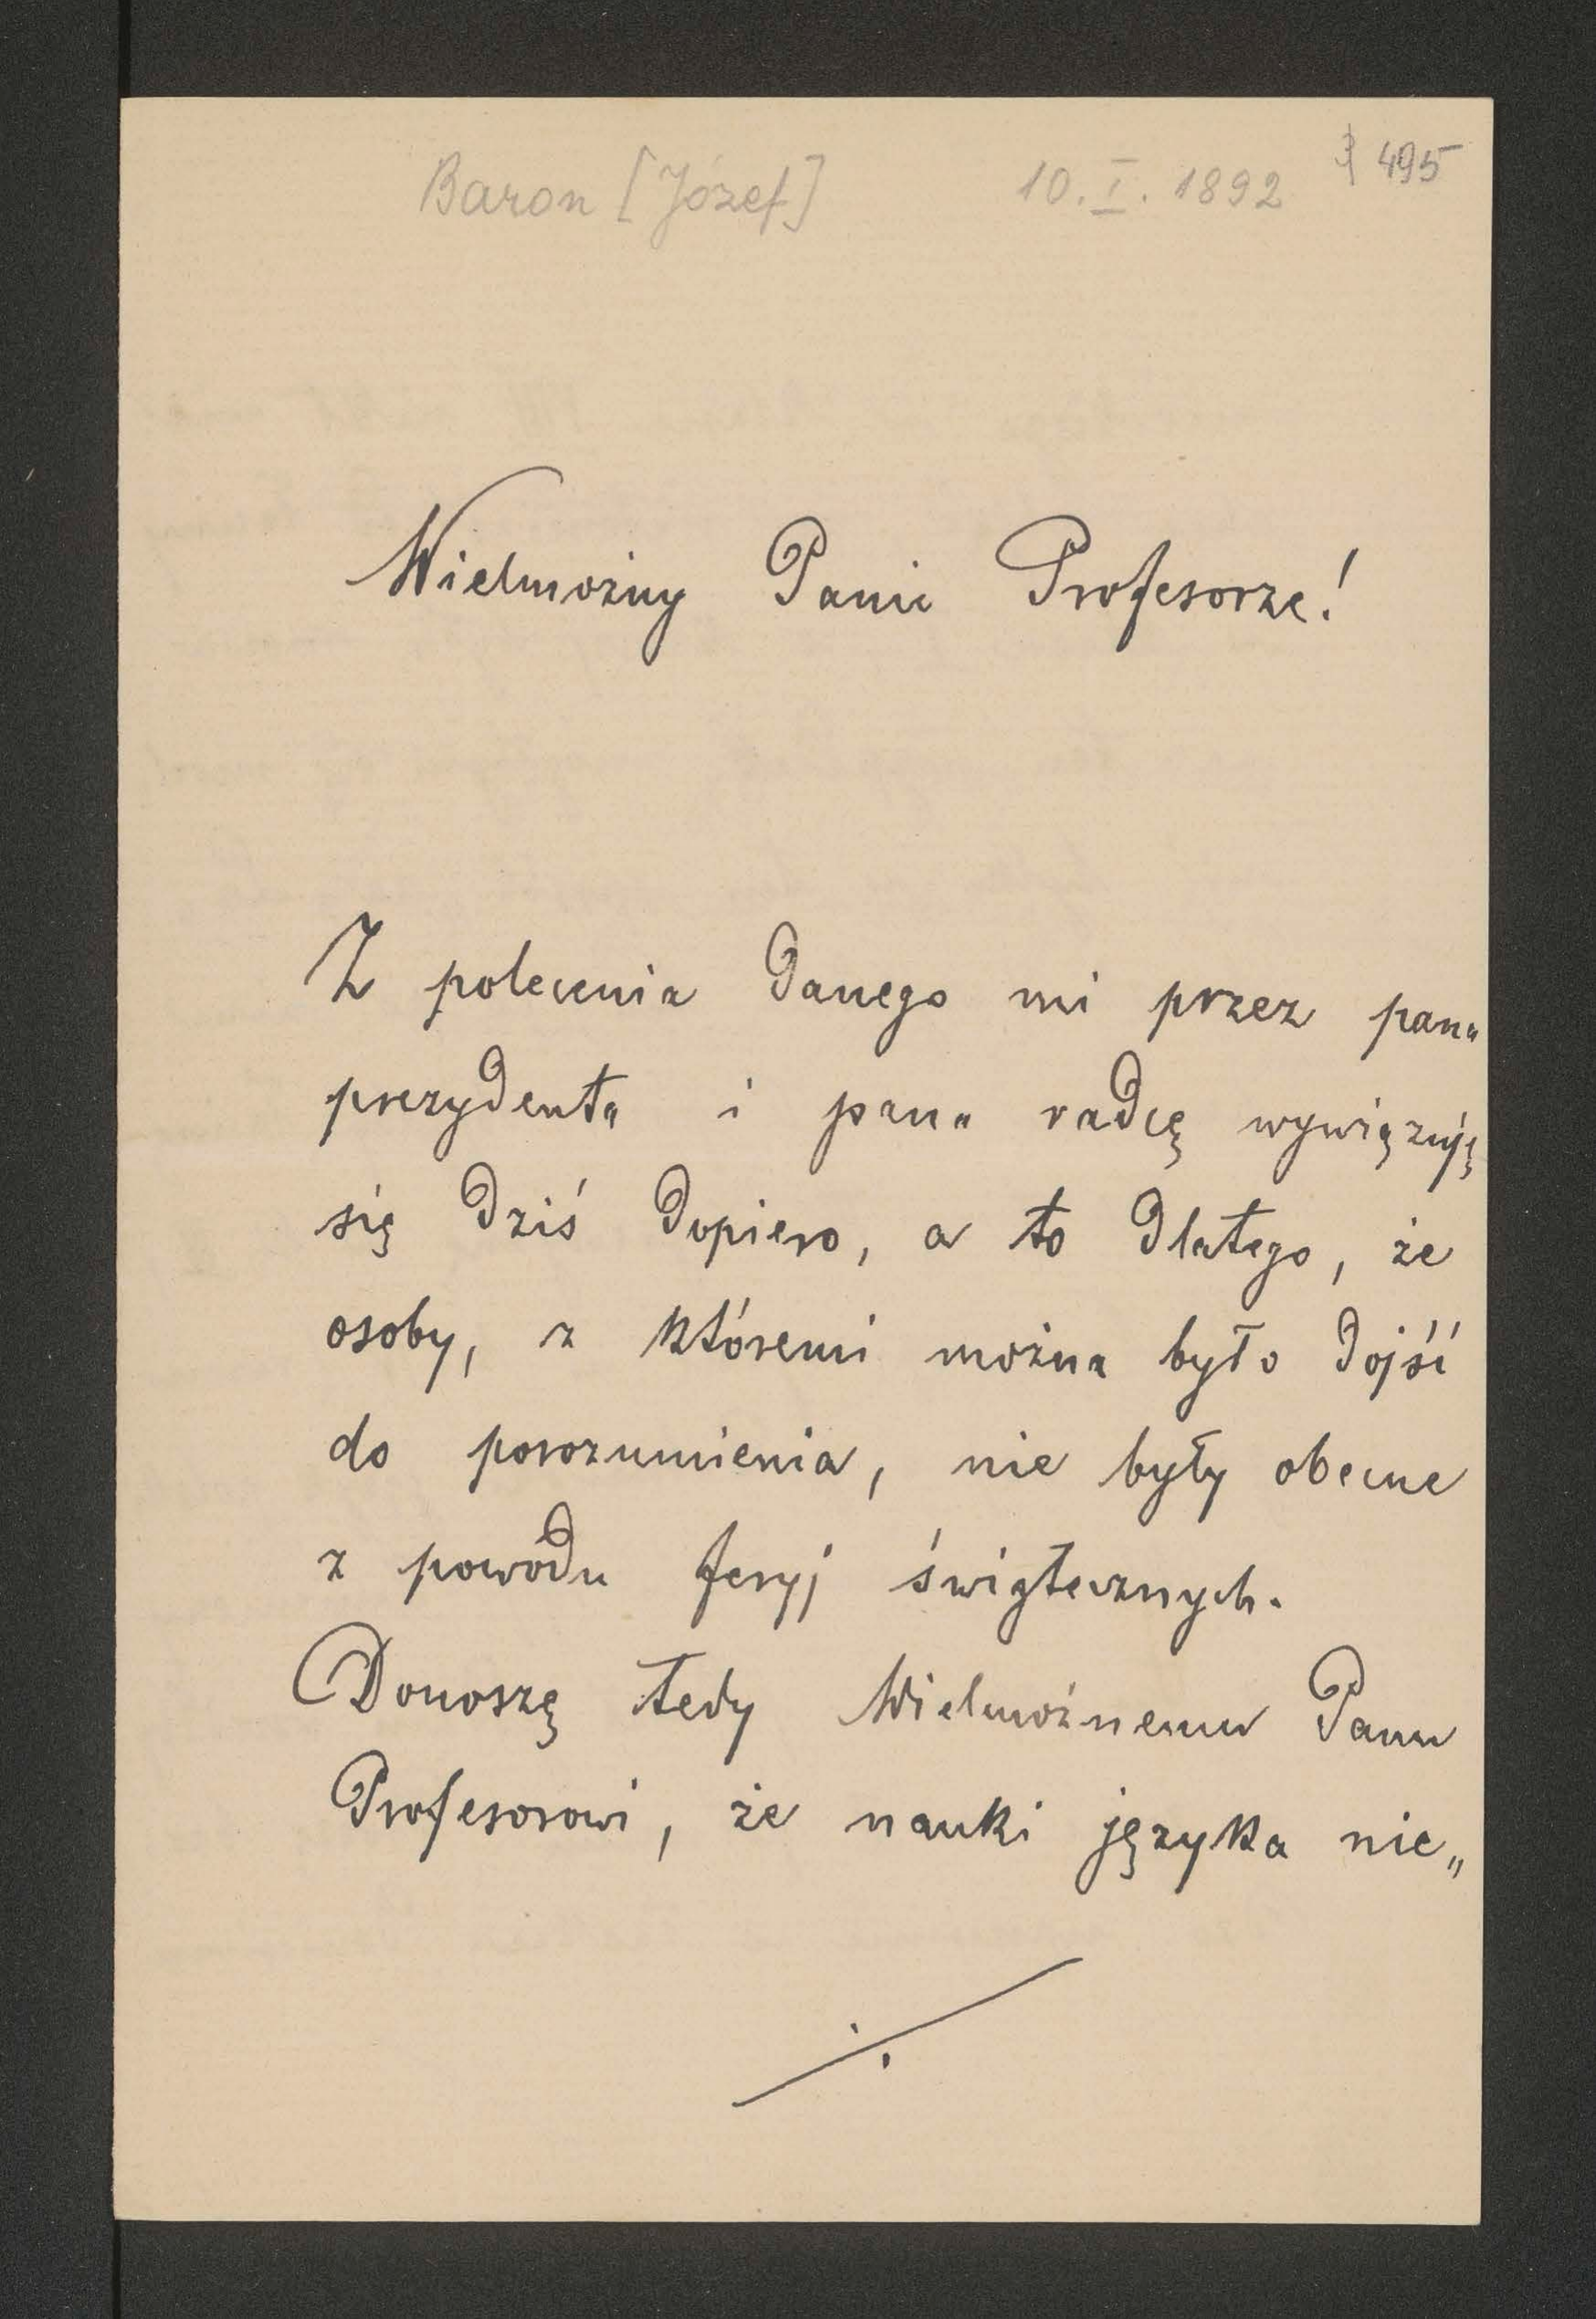 Baron [Józef] 10. I. 1892 495
Wielmożny Panie Profesorze!
Z polecenia danego mi przez pana
prezydenta i pana radcę wywiązuję
się dziś dopiero, a to dlatego, że
osoby, z któremi można było dojść
do porozumienia, nie były obecne
z powodu feryj świątecznych.
Donoszę tedy Wielmożnemu Panu
Profesorowi, że nauki języka nie„
./.